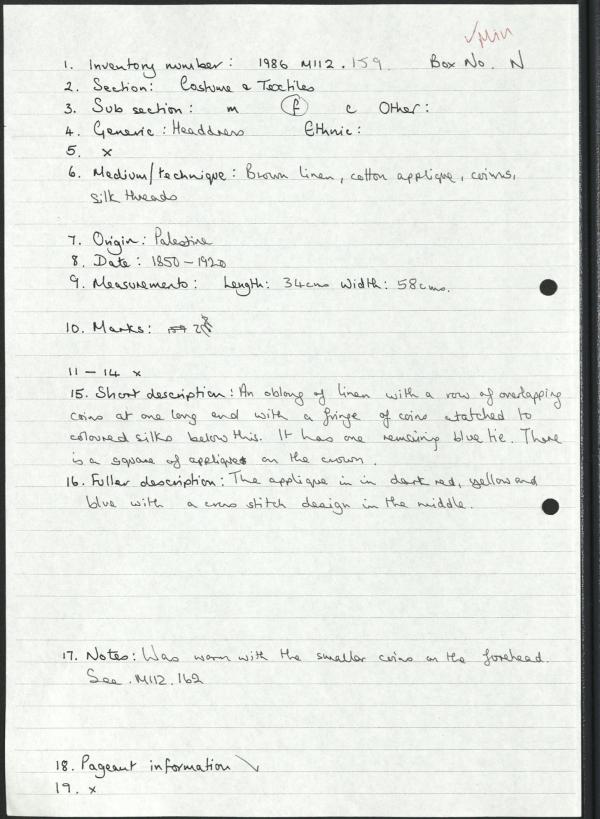 ✓Min
1. Inventory number: 1986 M112.159. Box No. N
2. Section: Costume & Textiles
3. Sub section: m f c Other:
4. Generic: Headdress Ethnic:
5. x
6. Medium/technique: Brown linen, cotton applique, coins,
silk threads
7. Origin: Palestine
8. Date: 1850-1920
9. Measurements: Length: 34cms Width: 58cms.
10. Marks:
11 - 14 x
15. Short description: An oblong of linen with a row of overlapping
coins at one long end with a fringe of coins atatched to
coloured silks below this. It has one remaining blue tie. There
is a square of applique on the crown.
16. Fuller description: The applique in in dark red, yellow and
blue with a cross stitch design in the middle.
17. Notes: Was worn with the smaller coins on the forehead.
See .M112.162
18. Pageant information \
19. x